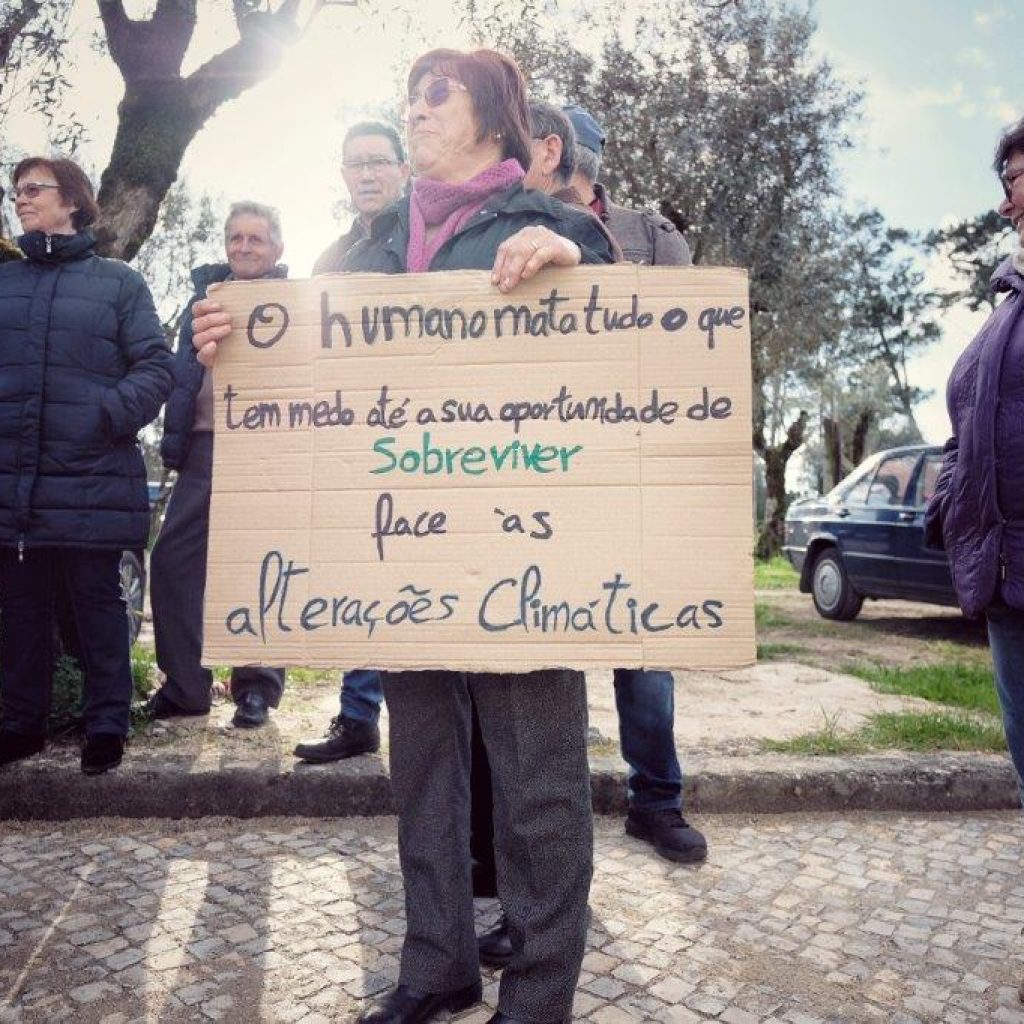 O humano mata tudo o que
tem medo até a sua oportunidade de
Sobreviver
face às
alterações Climáticas